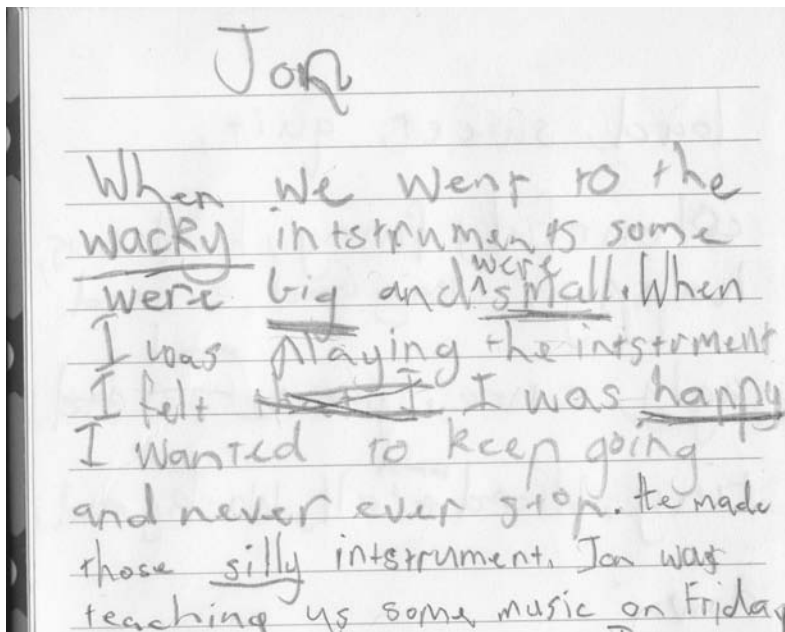 Jon
When we went to the
wacky intstruments some
were big and ^were small. When
I was playing the intstrment
I felt I was happy
I wanted to keep going
and never ever stop. He made
those silly intstrument. Jon was
teaching us some music on Friday